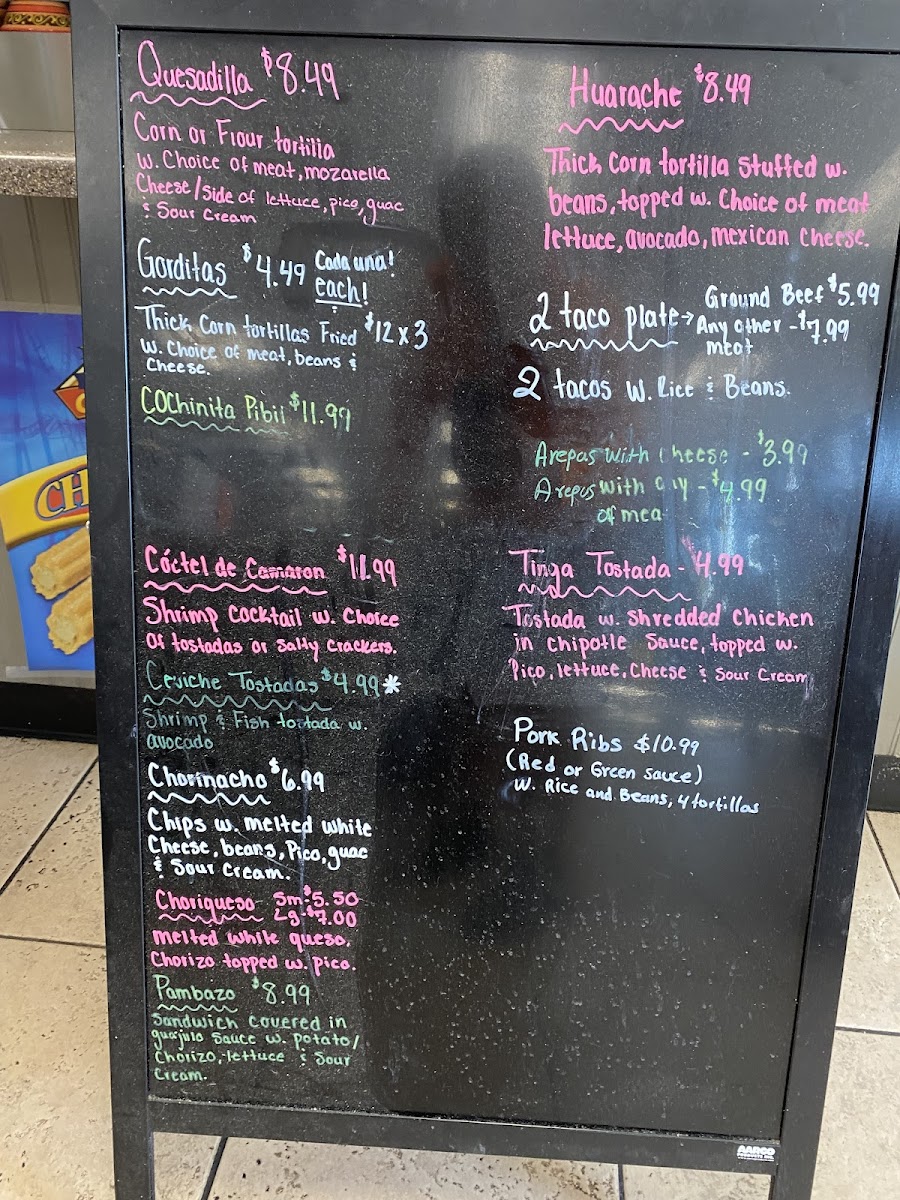 Quesadilla $8.49
Corn or Flour tortilla
w. Choice of meat, mozarella
Cheese/Side of lettuce, pico, guac
& Sour Cream
Gorditas $4.49 Cada una!
each!
Thick Corn tortillas Fried $12 x 3
w. Choice of meat, beans &
Cheese.
COChinita Pibil $11.99
Cóctel de Camaron $11.99
Shrimp Cocktail w. Choice
of tostadas or Salty Crackers.
Ceviche Tostadas $4.99*
Shrimp & Fish tostada w.
avocado
Chorinacho $6.99
Chips w. melted white
Cheese, beans, Pico, guac
& Sour Cream.
Choriqueso Sm-$5.50
Lg-$7.00
melted white queso,
Chorizo topped w. pico.
Pambazo $8.99
Sandwich covered in
guajillo Sauce w. potato/
Chorizo, lettuce & Sour
Cream.
Huarache $8.49
Thick Corn tortilla Stuffed w.
beans, topped w. Choice of meat
lettuce, avocado, mexican cheese.
2 taco plate→ Ground Beef $5.99
Any other -$7.99
meat
2 tacos w. Rice & Beans.
Arepas with cheese - $3.99
Arepas with any - $4.99
of meat
Tinga Tostada - 4.99
Tostada w. Shredded Chicken
in Chipotle Sauce, topped w.
Pico, lettuce, Cheese & Sour Cream
Pork Ribs $10.99
(Red or Green Sauce)
w. Rice and Beans, 4 tortillas
CH
AARCO
PRODUCTS, INC.